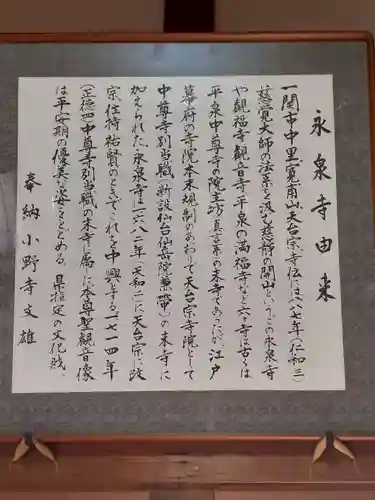 永泉寺由来
一関市中里寛南山天台宗寺伝には八八七年(仁和三)
慈覚大師の法系を汲む慈静の開山という。この永泉寺
や観福寺観音寺平泉の満福寺など六ヶ寺は古くは
平泉中尊寺の院主坊真言系の末寺であったが、江戸
幕府の寺院本末規制のあわりて天台宗寺院として
中尊寺別当職(新設仙台仙岳院兼帯)の末寺に
加えられた。永泉寺は一六八二年(天和二)に天台宗に改
宗、住持祐賢のもとでこれを中興とする。一七一四年
(正徳四)中尊寺別当職の末寺に属した。本尊聖観音像
は平安期の優美な姿をとどめる。県指定の文化財。
奉納 小野寺文雄